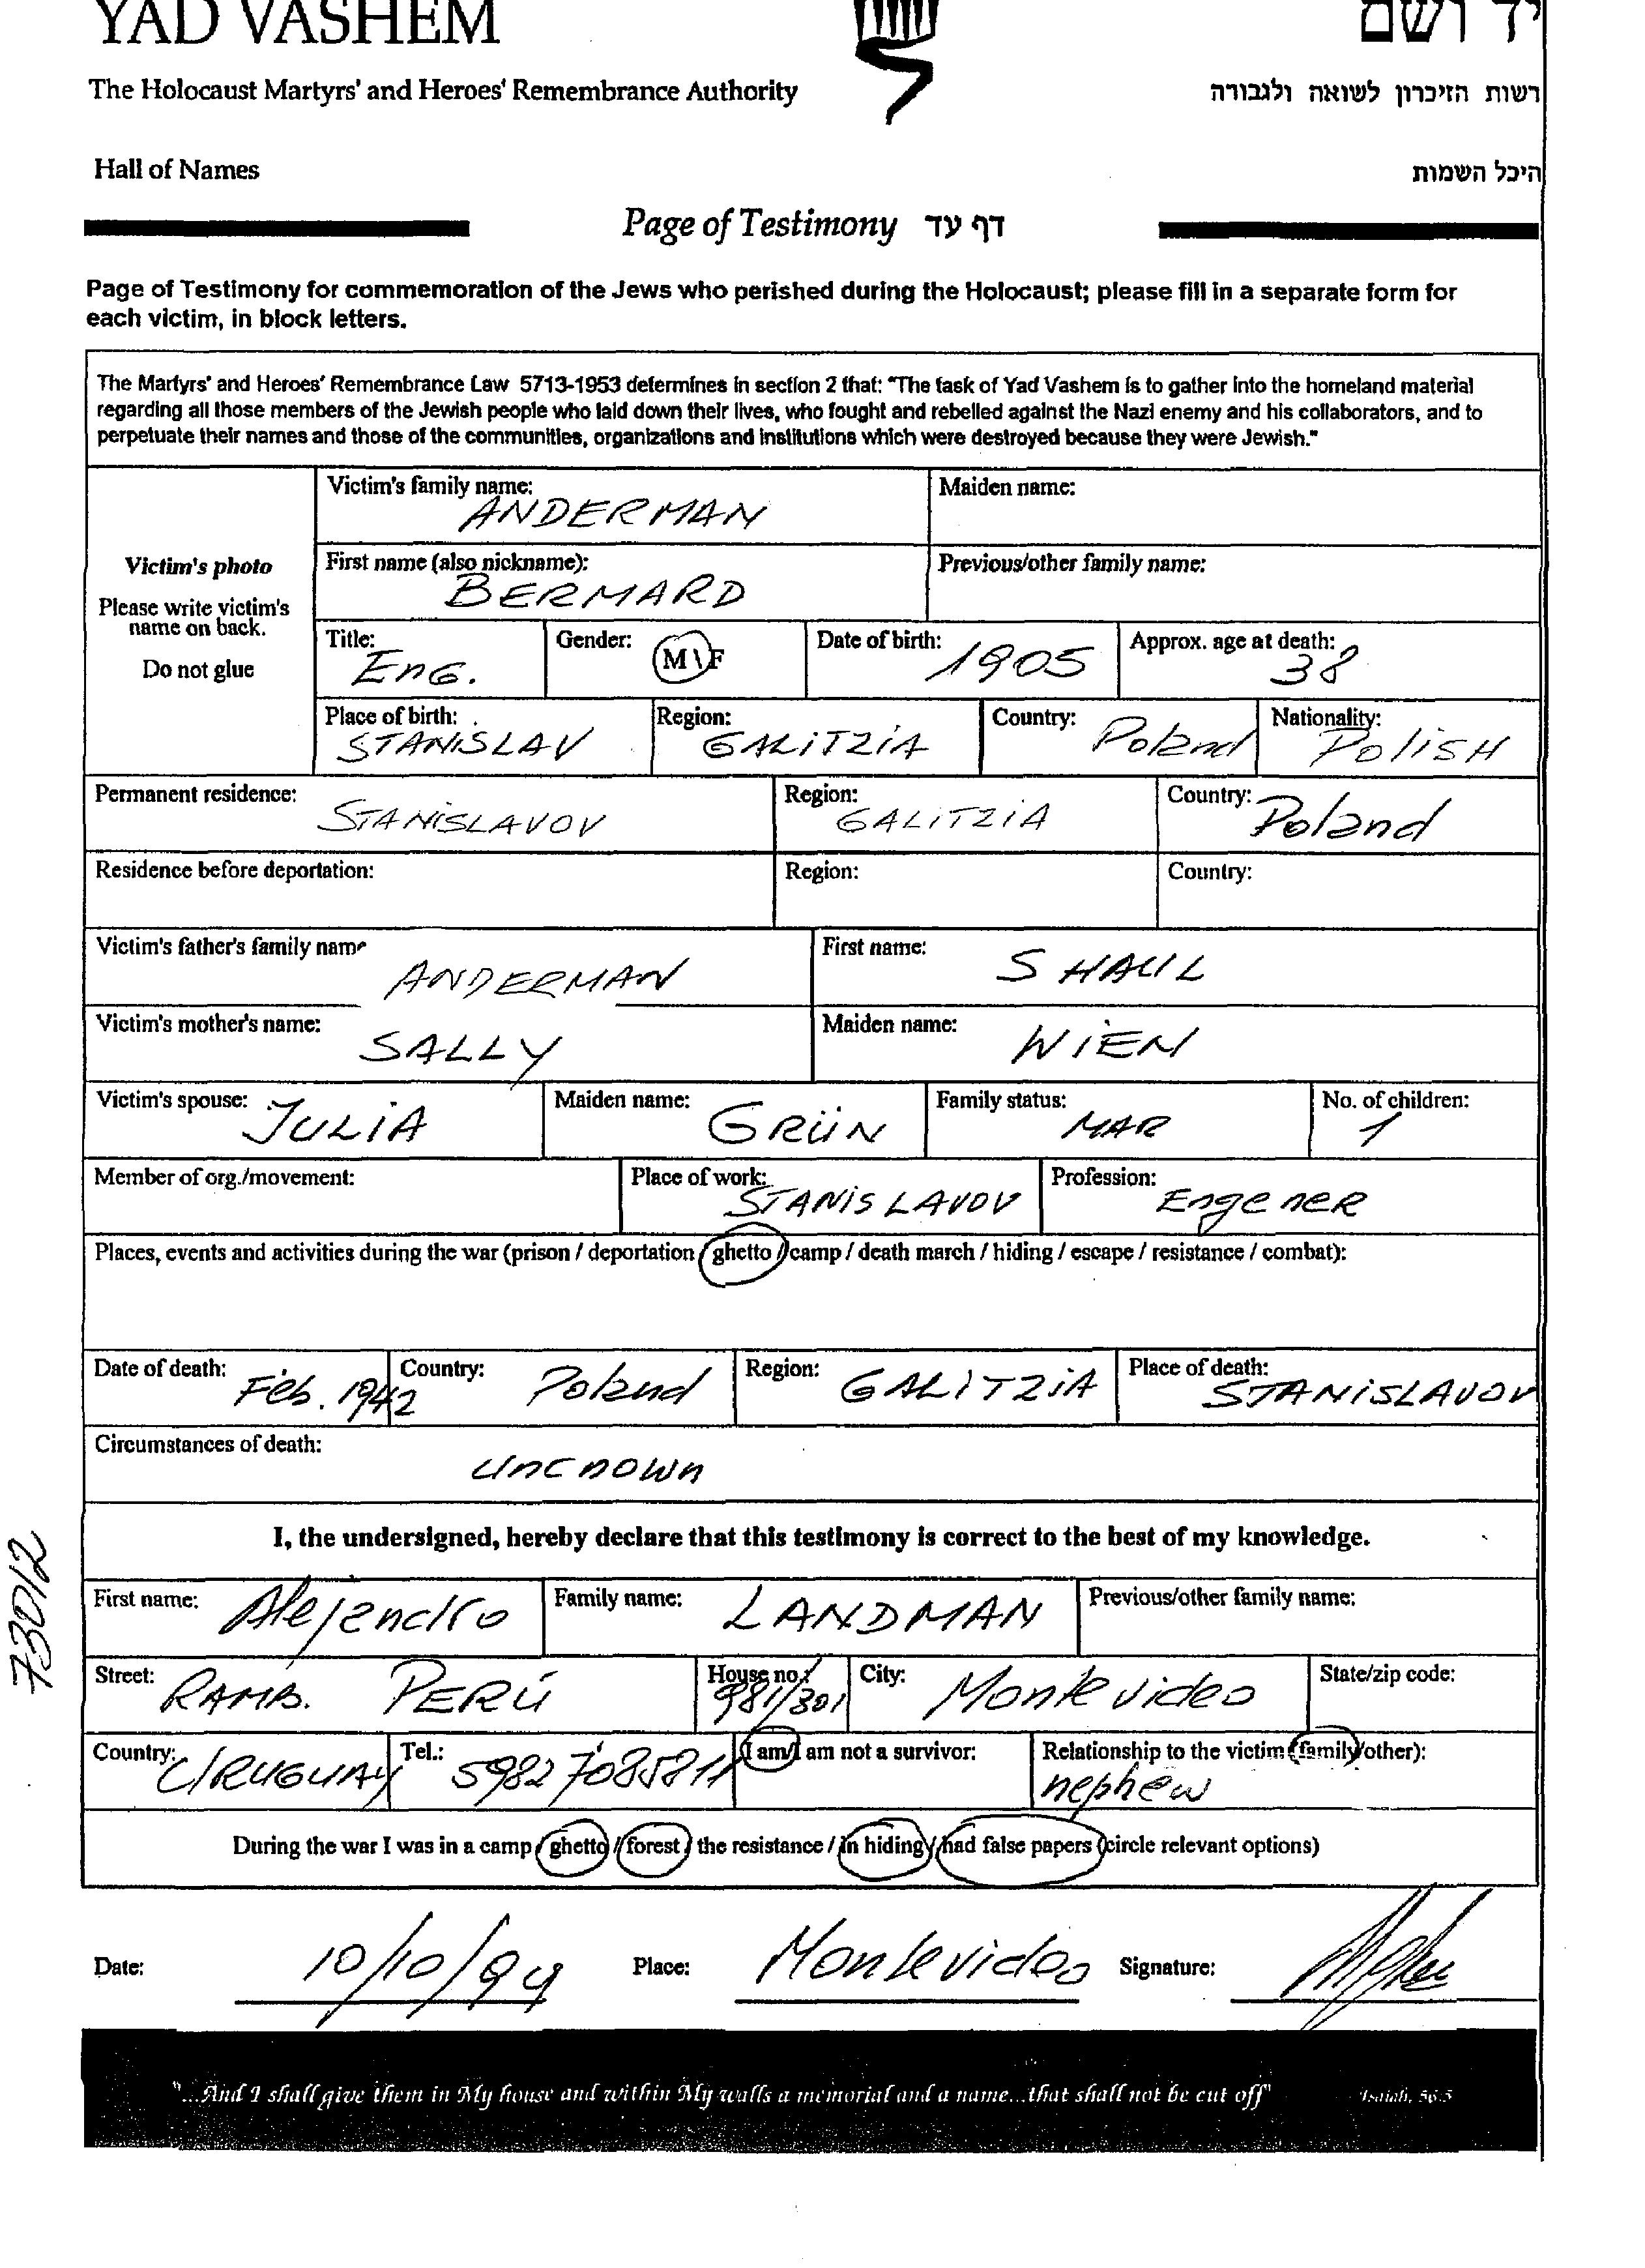 YAD VASHEM
יד ושם
The Holocaust Martyrs' and Heroes' Remembrance Authority
רשות הזיכרון לשואה ולגבורה
Hall of Names
היכל השמות
Page of Testimony דף עד
Page of Testimony for commemoration of the Jews who perished during the Holocaust; please fill in a separate form for
each victim, in block letters.
The Martyrs' and Heroes' Remembrance Law 5713-1953 determines in section 2 that: "The task of Yad Vashem is to gather into the homeland material
regarding all those members of the Jewish people who laid down their lives, who fought and rebelled against the Nazi enemy and his collaborators, and to
perpetuate their names and those of the communities, organizations and institutions which were destroyed because they were Jewish."
Victim's photo
Please write victim's
name on back.
Do not glue
Victim's family name: ANDERMAN
Maiden name:
First name (also nickname): BERMARD
Previous/other family name:
Title: EnG.
Gender: M \ F
Date of birth: 1905
Approx. age at death: 38
Place of birth: STANISLAV
Region: GALITZIA
Country: Poland
Nationality: POLISH
Permanent residence: STANISLAVOV
Region: GALITZIA
Country: Poland
Residence before deportation:
Region:
Country:
Victim's father's family name ANDERMAN
First name: SHAUL
Victim's mother's name: SALLY
Maiden name: WIEN
Victim's spouse: JULIA
Maiden name: GRÜN
Family status: MAR
No. of children: 1
Member of org./movement:
Place of work: STANISLAVOV
Profession: EngenER
Places, events and activities during the war (prison / deportation / ghetto / camp / death march / hiding / escape / resistance / combat):
Date of death: Feb. 1942
Country: Poland
Region: GALITZIA
Place of death: STANISLAVOV
Circumstances of death: uncnown
I, the undersigned, hereby declare that this testimony is correct to the best of my knowledge.
First name: Alejandro
Family name: LANDMAN
Previous/other family name:
Street: RAMB. PERÚ
House no.: 981/301
City: Montevideo
State/zip code:
Country: URUGUAY
Tel.: 59827085811
I am/I am not a survivor:
Relationship to the victim (family/other): nephew
During the war I was in a camp / ghetto / forest / the resistance / in hiding / had false papers (circle relevant options)
Date: 10/10/99
Place: Montevideo
Signature:
"...And I shall give them in My house and within My walls a memorial and a name...that shall not be cut off"
Isaiah, 56:5
73012